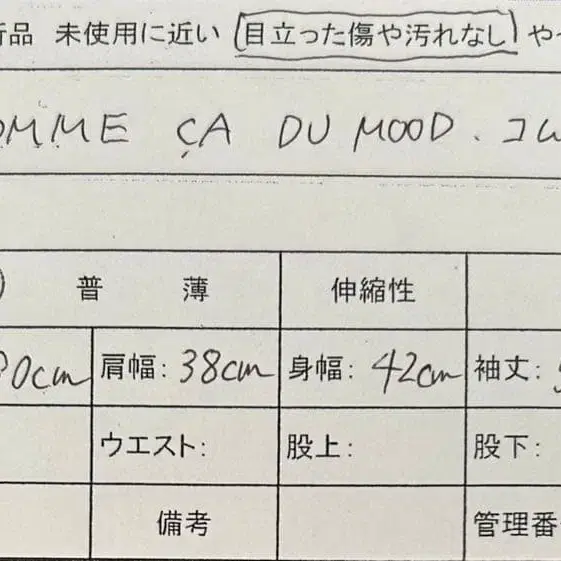 新品 未使用に近い 目立った傷や汚れなし や
OMME ÇA DU MOOD. コム
普 薄 伸縮性
80cm 肩幅: 38cm 身幅: 42cm 袖丈:
ウエスト: 股上: 股下:
備考 管理番